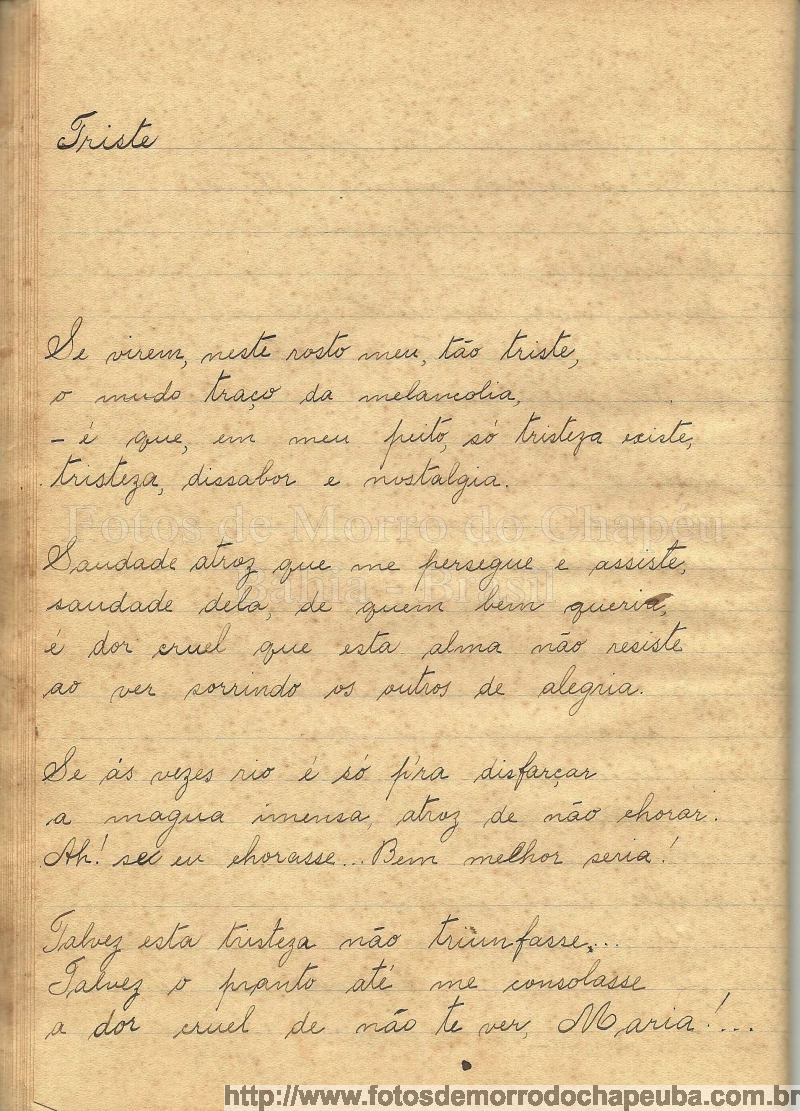 Triste
Se virem, neste rosto meu, tão triste,
o mudo traço da melancolia,
- é que, em meu peito, só tristeza existe,
tristeza, dissabor e nostalgia.
Fotos de Morro do Chapéu
Bahia - Brasil
Saudade atroz que me persegue e assiste,
saudade dela, de quem bem queria,
é dor cruel que esta alma não resiste
ao ver sorrindo os outros de alegria.
Se ás vezes rio é só p'ra disfarçar
a magua imensa, atroz de não chorar.
Ah! se eu chorasse... Bem melhor seria!
Talvez esta tristeza não triunfasse...
Talvez o pranto até me consolasse
a dor cruel de não te ver, Maria!...
http://www.fotosdemorrodochapeuba.com.br